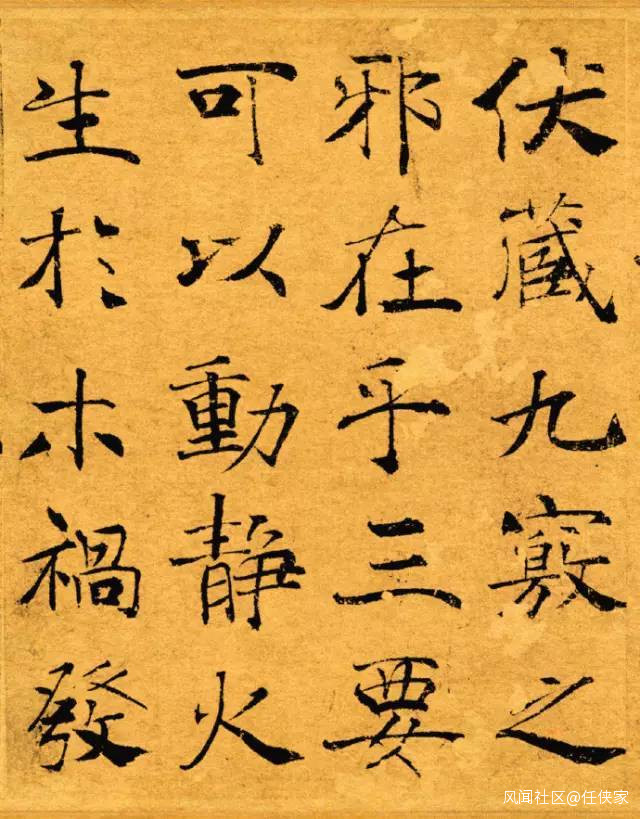 伏藏九竅之
邪在乎三要
可以動静火
生於木禍發
风闻社区@任侠家